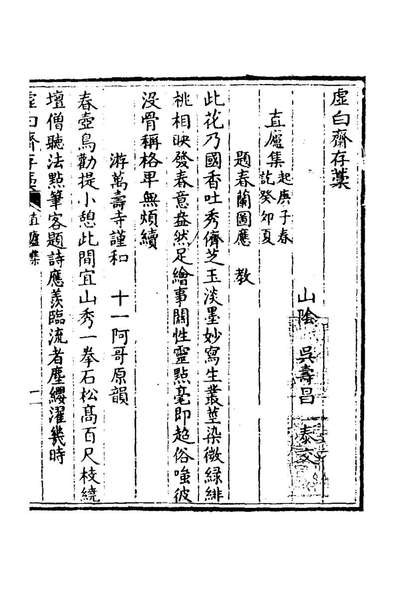 虛白齋存藁
山陰 吳壽昌 泰交
直廬集起庚子春訖癸卯夏
題春蘭圖應 敎
此花乃國香吐秀儕芝玉淡墨妙寫生叢莖染微綠緋
桃相映發春意盎然足繪事關性靈點毫即超俗嗤彼
沒骨稱格卑無煩續
游萬壽寺謹和 十一阿哥原韻
春壺鳥勸提小憩此間宜山秀一拳石松高百尺枝繞
壇僧聽法點筆客題詩應羨臨流者塵纓濯幾時
虛白齋存藁 直廬集 一